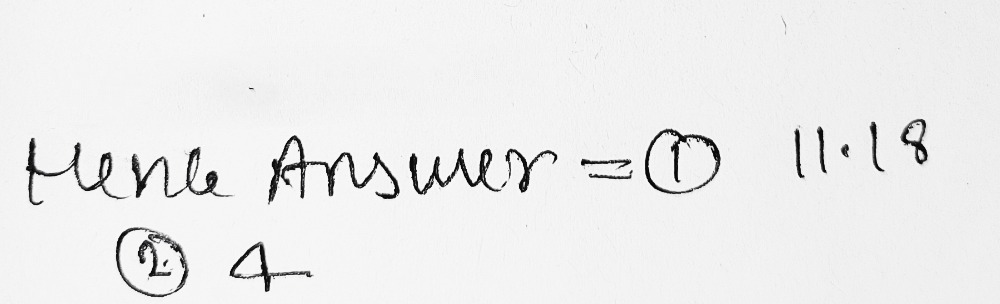 Hence Answer = ① 11.18
② 4